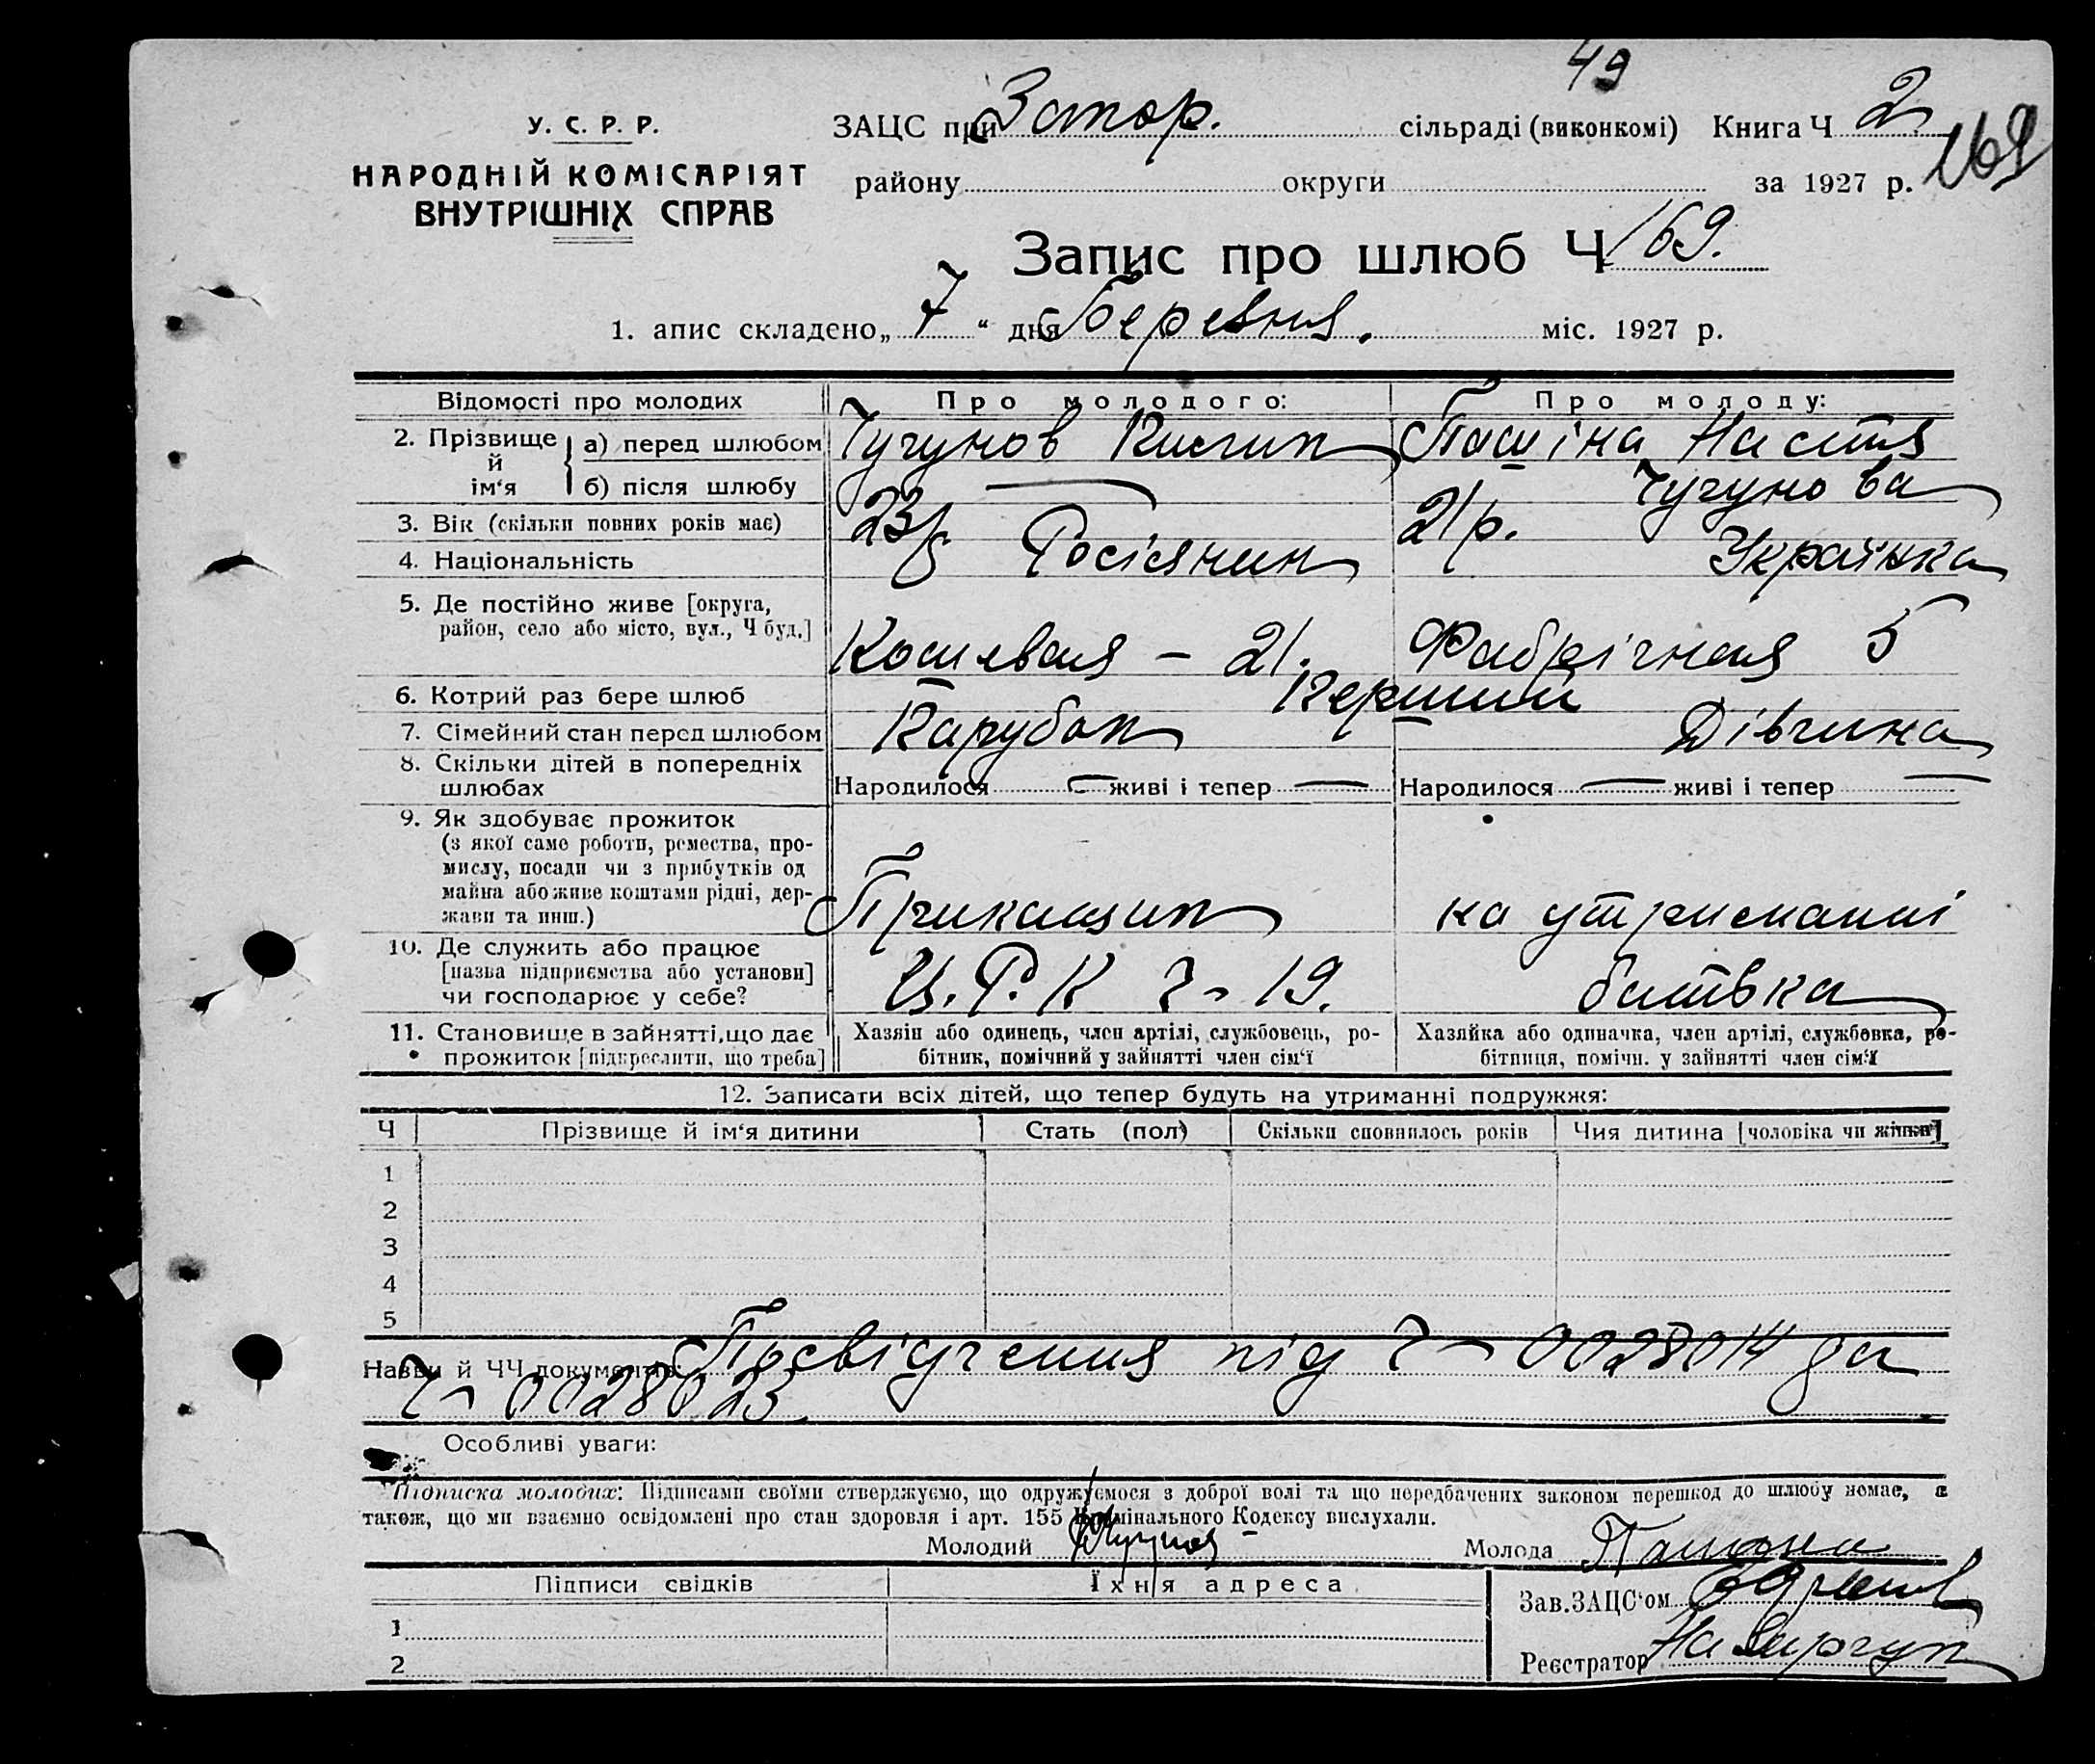 49
У. С. Р. Р.
НАРОДНІЙ КОМІСАРІЯТ
ВНУТРІШНІХ СПРАВ
ЗАЦС при Запор. сільраді (виконкомі) Книга Ч 2
району округи за 1927 р. 169
Запис про шлюб Ч 169.
1. апис складено „ 7 “ дня Березня. міс. 1927 р.
Відомості про молодих Про молодого: Про молоду:
2. Прізвище й ім‘я а) перед шлюбом Чугунов Пашіна Настя
б) після шлюбу — Чугунова
3. Вік (скільки повних років має) 23 21 р.
4. Національність Росіянин Українка
5. Де постійно живе [округа,
район, село або місто, вул., Ч буд.] – 21. Фабрічная 5
6. Котрий раз бере шлюб Перший
7. Сімейний стан перед шлюбом Парубок Дівчина
8. Скільки дітей в попередніх
шлюбах Народилося — живі і тепер — Народилося — живі і тепер —
9. Як здобуває прожиток
(з якої саме роботи, ремества, про-
мислу, посади чи з прибутків од
майна або живе коштами рідні, дер-
жави та инш.) Прикащик на утриманні
10. Де служить або працює
[назва підприємства або установи]
чи господарює у себе? Ц. Р. К Ч 19. батька
11. Становище в зайнятті, що дає
прожиток [підкреслити, що треба]
Хазяін або одинець, член артілі, службовець, ро-
бітник, помічний у зайнятті член сім‘ї
Хазяйка або одиначка, член артілі, службовка, ро-
бітниця, помічн. у зайнятті член сім‘ї
12. Записати всіх дітей, що тепер будуть на утриманні подружжя:
Ч Прізвище й ім‘я дитини Стать (пол) Скільки сповнилось років Чия дитина [чоловіка чи жінки]
1
2
3
4
5
Назви й ЧЧ документів: Посвідчення під Ч 0028014 да
Ч 0028023
Особливі уваги:
Підписка молодих: Підписами своїми стверджуємо, що одружуємося з доброї волі та що передбачених законом перешкод до шлюбу немає, а
також, що ми взаємно освідомлені про стан здоровля і арт. 155 Кримінального Кодексу вислухали.
Молодий Чугунов Молода
Підписи свідків Їхня адреса
1
2
Зав. ЗАЦС‘ом
Реєстратор